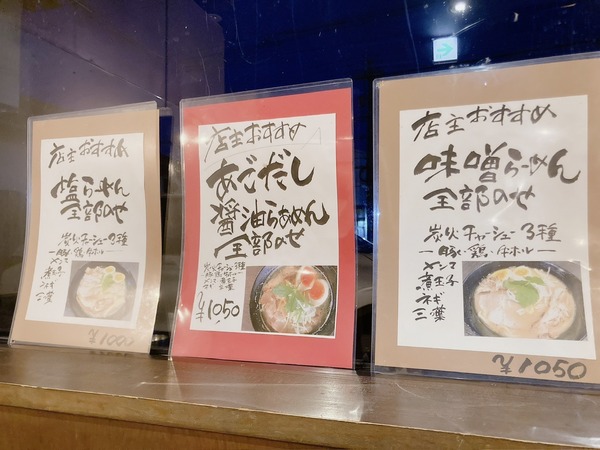 店主おすすめ
塩らーめん
全部のせ
炭火チャーシュー3種
ー豚・鶏・牛ホルー
メンマ
煮玉子
ネギ
三葉
¥1000
店主おすすめ
あごだし
醤油らぁめん
全部のせ
炭火チャーシュー3種
メンマ 煮玉子
三葉
¥1050
店主おすすめ
味噌らーめん
全部のせ
炭火チャーシュー3種
ー豚・鶏・牛ホルー
メンマ
煮玉子
ネギ
三葉
¥1050